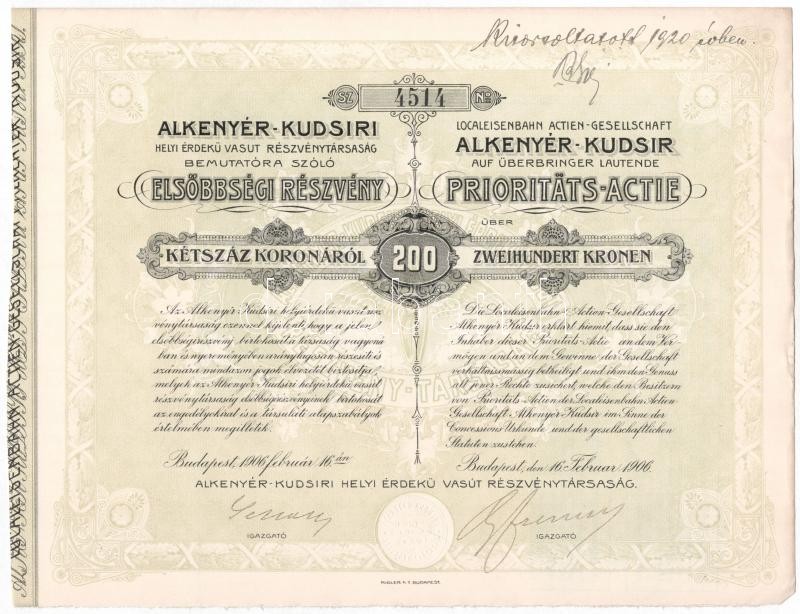 Kisorsoltatott 1920 évben.
SZ 4514 No
ALKENYÉR-KUDSIRI
HELYI ÉRDEKŰ VASUT RÉSZVÉNYTÁRSASÁG
BEMUTATÓRA SZÓLÓ
ELSŐBBSÉGI RÉSZVÉNY
KÉTSZÁZ KORONÁRÓL
200
LOCALEISENBAHN ACTIEN-GESELLSCHAFT
ALKENYÉR-KUDSIR
AUF ÜBERBRINGER LAUTENDE
PRIORITÄTS-ACTIE
ÜBER
ZWEIHUNDERT KRONEN
Az Alkenyér Kudsiri helyiérdekű vasút rész
vénytársaság ezennel kijelenti, hogy a jelen
elsőbbségi részvény birtokosát a társaság vagyoná
ban és nyereményében aránylagosan részesíti és
számára mindazon jogok élvezetét biztosítja,
melyek az Alkenyér Kudsiri helyiérdekű vasút
részvénytársaság elsőbbségi részvényeinek birtokosát
az engedélyokirat és a társulati alapszabályok
értelmében megilletik.
Budapest, 1906 február 16.án
Die Localeisenbahn-Action-Gesellschaft
Alkenyér-Kudsir erklärt hiemit, dass sie den
Inhaber dieser Prioritäts-Actie an dem Ver-
mögen und an dem Gewinne der Gesellschaft
verhältnissmässig betheiligt und ihm den Genuss
all jener Rechte zusichert, welche den Besitzern
von Prioritäts-Actien der Localeisenbahn Actien
Gesellschaft Alkenyér-Kudsir im Sinne der
Concessions Urkunde und der gesellschaftlichen
Statuten zustehen.
Budapest, den 16. Februar 1906.
ALKENYÉR-KUDSIRI HELYI ÉRDEKŰ VASÚT RÉSZVÉNYTÁRSASÁG.
IGAZGATÓ
IGAZGATÓ
RIGLER R. T. BUDAPEST.